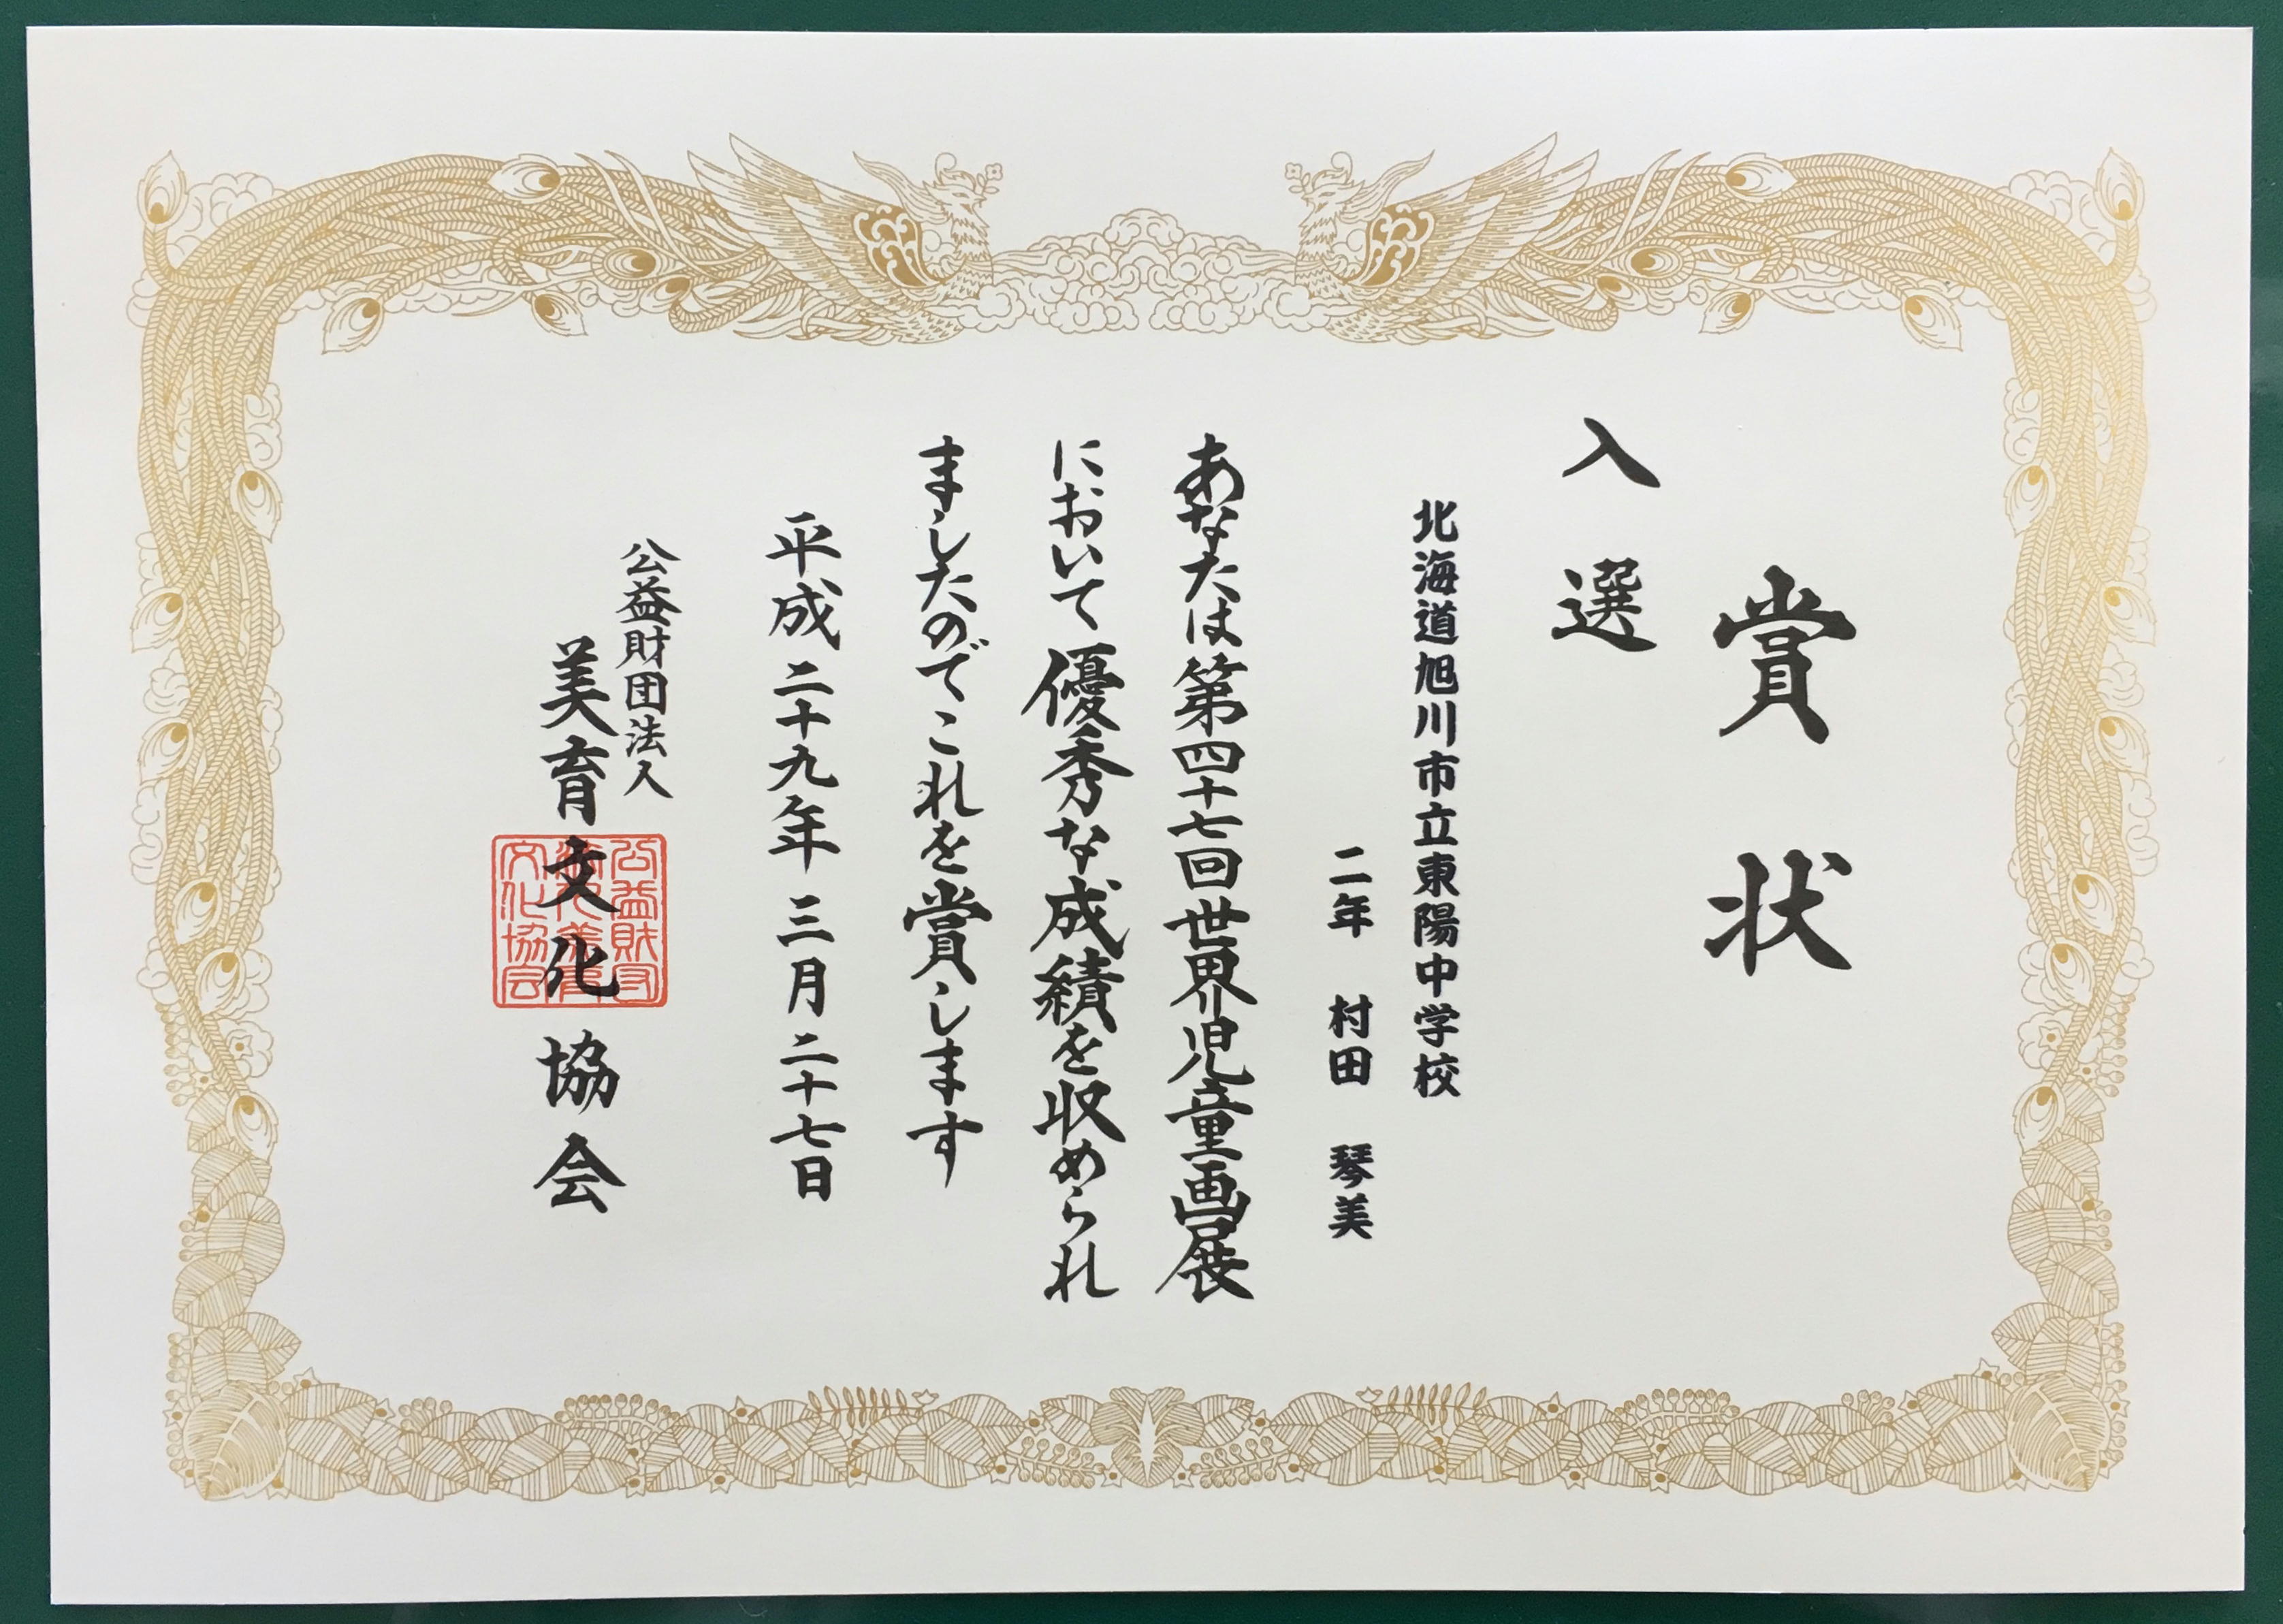 賞状
入選
北海道旭川市立東陽中学校
二年 村田 琴美
あなたは第四十七回世界児童画展
において優秀な成績を収められ
ましたのでこれを賞します
平成二十九年三月二十七日
公益財団法人
美育文化協会